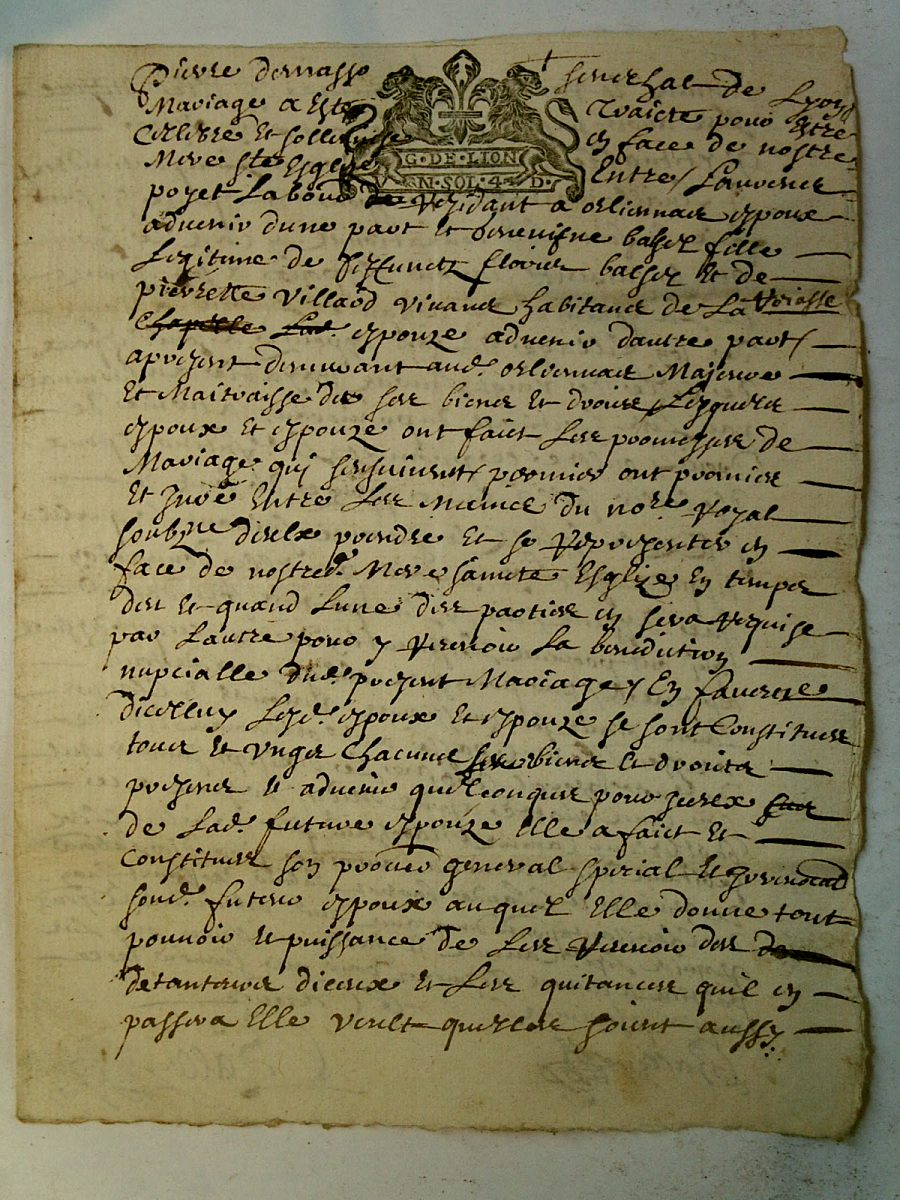 Pierre seneschal de Lyon
Mariage a Esté traicte pour Estre
Celebre Et sollennise en face de nostre
Mere ste Esglise Entre Laurence
G·DE·LION
N·SOL·4·D·
poyet Labour de residant a orliennas espoux
advenir dune part Et benoiste fille
Legitime de deffunct Et de
pierrette villard vivant habitans de La
Chapelle Lad. espouze advenir dautre part
a present demeurant aud. orliennas Majeure
Et Maitraisse de ses biens Et droits Lesquels
espoux Et espouze ont faict Les promesses de
Mariage quj sensuivent premier ont promis
Et Juré Entre Les Mains du nore Royal
soubzne dielx prendre Et se representer en
face de nostred. Mere saincte Esglize En temps
deu Et quand Lune des parties en sera requise
par Lautre pour y recevoir La benediction
nupcialle dud. present Mariage En faveur
diceluy Lesd. espoux Et espouze se sont Constitues
tous Et ungs Chacuns ses biens Et droits
presens Et advenir quelconques pour iceux
de Lad. future espouze Elle a faict Et
Constitues son procur general special Et
sond. futur espoux auquel Elle donne tout
pouvoir Et puissance de Les recevoir des
detanteurs diceux Et Les quitances quil en
passera Elle veult quelles soient aussy